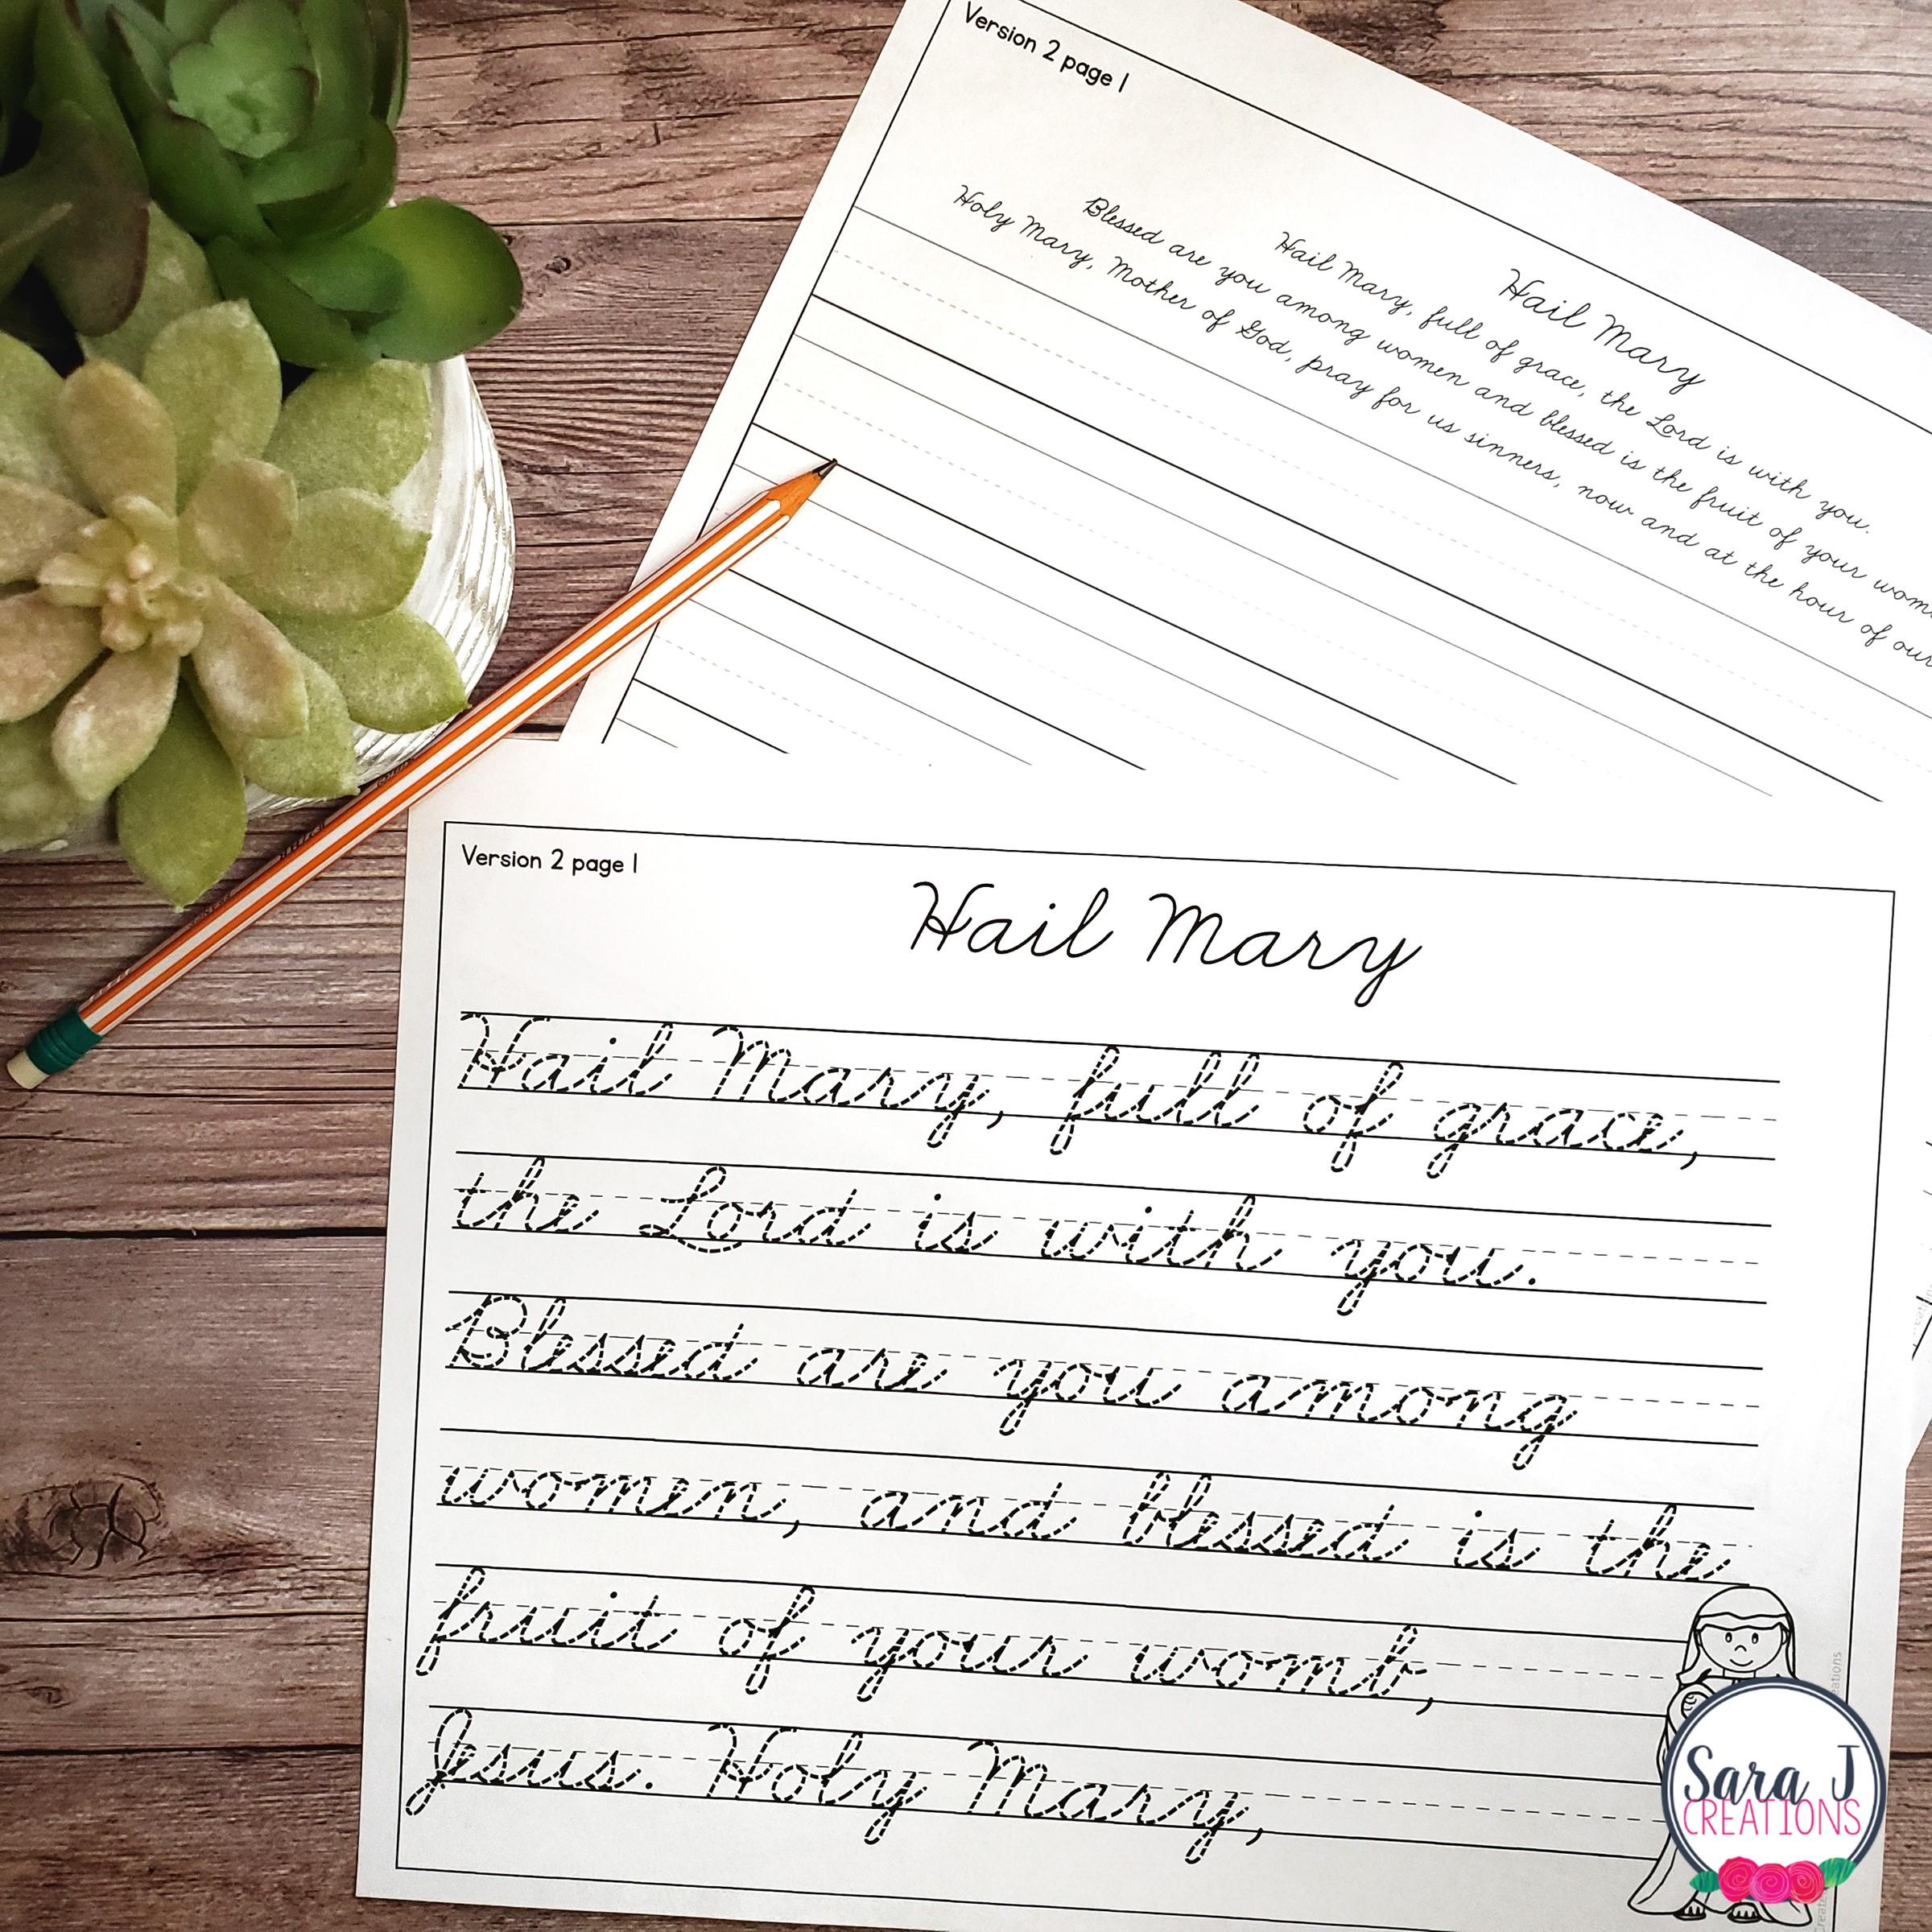 Version 2 page 1
Hail Mary
Hail Mary, full of grace, the Lord is with you.
Blessed are you among women and blessed is the fruit of your
Holy Mary, Mother of God, pray for us sinners, now and at the hour of our
Version 2 page 1
Hail Mary
Hail Mary, full of grace,
the Lord is with you.
Blessed are you among
women, and blessed is the
fruit of your womb,
Jesus. Holy Mary,
Sara J
CREATIONS